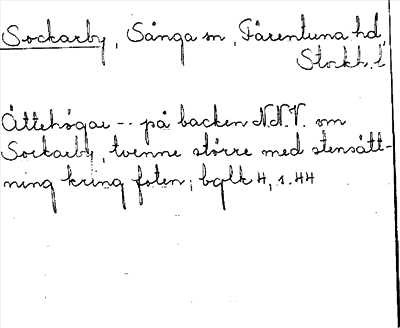 Sockarby, Sånga sn, Färentuna hd,
Stockh. l.
Ättehögar -- på backen N.N.V. om
Sockarby, tvenne större med stensätt-
ning kring foten; bglk 4, s. 44